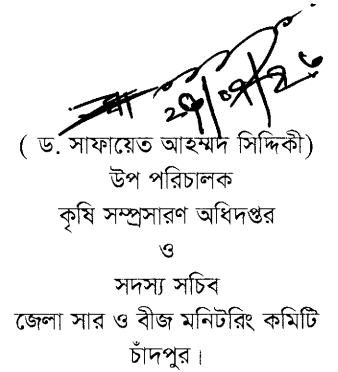 ( ড. সাফায়েত আহম্মদ সিদ্দিকী)
উপ পরিচালক
কৃষি সম্প্রসারণ অধিদপ্তর
ও
সদস্য সচিব
জেলা সার ও বীজ মনিটরিং কমিটি
চাঁদপুর।